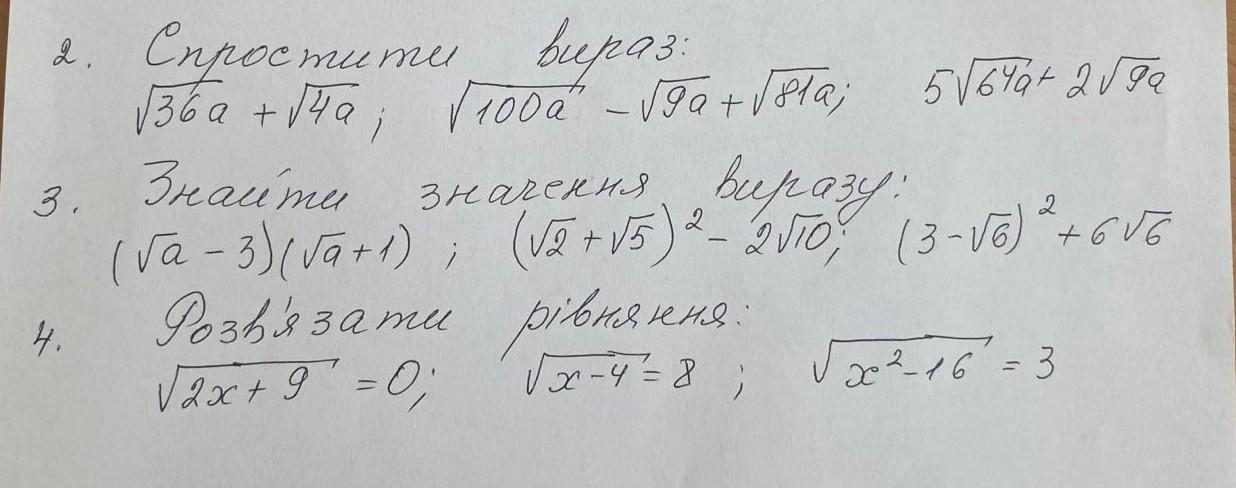 2. Спростити вираз:
√36a + √4a; √100a - √9a + √81a; 5√64a + 2√9a
3. Знайти значення виразу:
(√a - 3)(√a + 1); (√2 + √5)² - 2√10; (3 - √6)² + 6√6
4. Розв'язати рівняння:
√2x + 9 = 0; √x - 4 = 8; √x² - 16 = 3